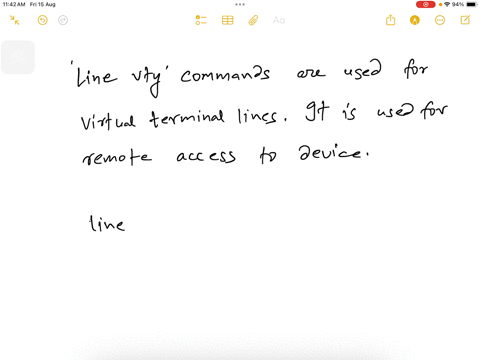 11:42 AM Fri 15 Aug
94%
Aa
'Line vty' commands are used for
virtual terminal lines. It is used for
remote access to device.
line